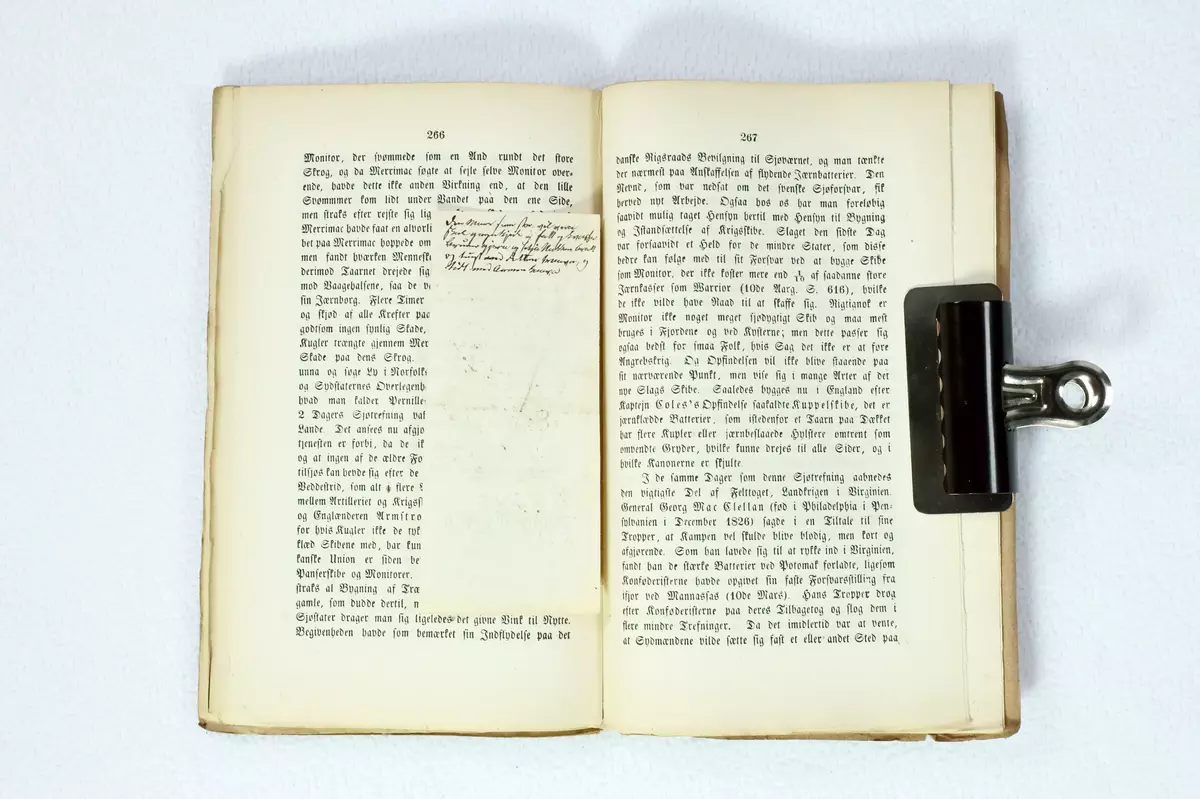 266
Monitor, der svømmede som en And rundt det store
Skrog, og da Merrimac søgte at sejle selve Monitor over-
ende, havde dette ikke anden Virkning end, at den lille
Svømmer kom lidt under Vandet paa den ene Side,
men straks efter rejste sig lig
Merrimac havde faaet en alvorli
bet paa Merrimac hoppede om
men fandt hværken Menneske
derimod Taarnet drejede sig
mod Vaagehalsene, saa de v
sin Jærnborg. Flere Timer
og skjød af alle Kræfter paa
godtsom ingen synlig Skade,
Kugler trængte gjennem Mer
Skade paa dens Skrog.
unna og søge Ly i Norfolk
og Sydstaternes Overlegenh
hvad man kalder Pernille
2 Dagers Sjøtrefning vat
Lande. Det ansees nu afgjo
tjenesten er forbi, da de ik
og at ingen af de ældre Fo
tilsjøs kan hevde sig efter de
Veddestrid, som alt i flere
mellem Artilleriet og Krigss
og Englænderen Armstro
for hvis Kugler ikke de tyk
klæd Skibene med, har kun
kanske Union er siden be
Panserskibe og Monitorer.
straks al Bygning af Træ
gamle, som dudde dertil, n
Sjøstater drager man sig ligeledes det givne Vink til Nytte.
Begivenheden havde som bemærket sin Indflydelse paa det
267
danske Rigsraads Bevilgning til Sjøværnet, og man tænkte
der nærmest paa Anskaffelsen af flydende Jærnbatterier. Den
Nevnd, som var nedsat om det svenske Sjøforsvar, fik
herved nyt Arbejde. Ogsaa hos os har man foreløbig
saavidt mulig taget Hensyn hertil med Hensyn til Bygning
og Istandsættelse af Krigsskibe. Slaget den sidste Dag
var forsaavidt et Held for de mindre Stater, som disse
bedre kan følge med til sit Forsvar ved at bygge Skibe
som Monitor, der ikke koster mere end 1/10 af saadanne store
Jærnkasser som Warrior (10de Aarg. S. 616), hvilke
de ikke vilde have Raad til at skaffe sig. Rigtignok er
Monitor ikke noget meget sjødygtigt Skib og maa mest
bruges i Fjordene og ved Kysterne; men dette passer sig
ogsaa bedst for smaa Folk, hvis Sag det ikke er at føre
Angrebskrig. Og Opfindelsen vil ikke blive staaende paa
sit nærværende Punkt, men vise sig i mange Arter af det
nye Slags Skibe. Saaledes bygges nu i England efter
Kaptejn Coles's Opfindelse saakaldte Kuppelskibe, det er
jærnklædde Batterier, som istedenfor et Taarn paa Dækket
har flere Kupler eller jærnbeslaaede Hylstere omtrent som
omvendte Gryder, hvilke kunne drejes til alle Sider, og i
hvilke Kanonerne er skjulte.
I de samme Dager som denne Sjøtrefning aabnedes
den vigtigste Del af Felttoget, Landkrigen i Virginien.
General Georg Mac Clellan (fød i Philadelphia i Pen-
sylvanien i December 1826) sagde i en Tiltale til sine
Tropper, at Kampen vel skulde blive blodig, men kort og
afgjørende. Som han lavede sig til at rykke ind i Virginien,
fandt han de stærke Batterier ved Potomak forladte, ligesom
Konføderisterne havde opgivet sin faste Forsvarsstilling fra
ifjor ved Mannassas (10de Mars). Hans Tropper drog
efter Konføderisterne paa deres Tilbagetog og slog dem i
flere mindre Trefninger. Da det imidlertid var at vente,
at Sydmændene vilde sætte sig fast et eller andet Sted paa